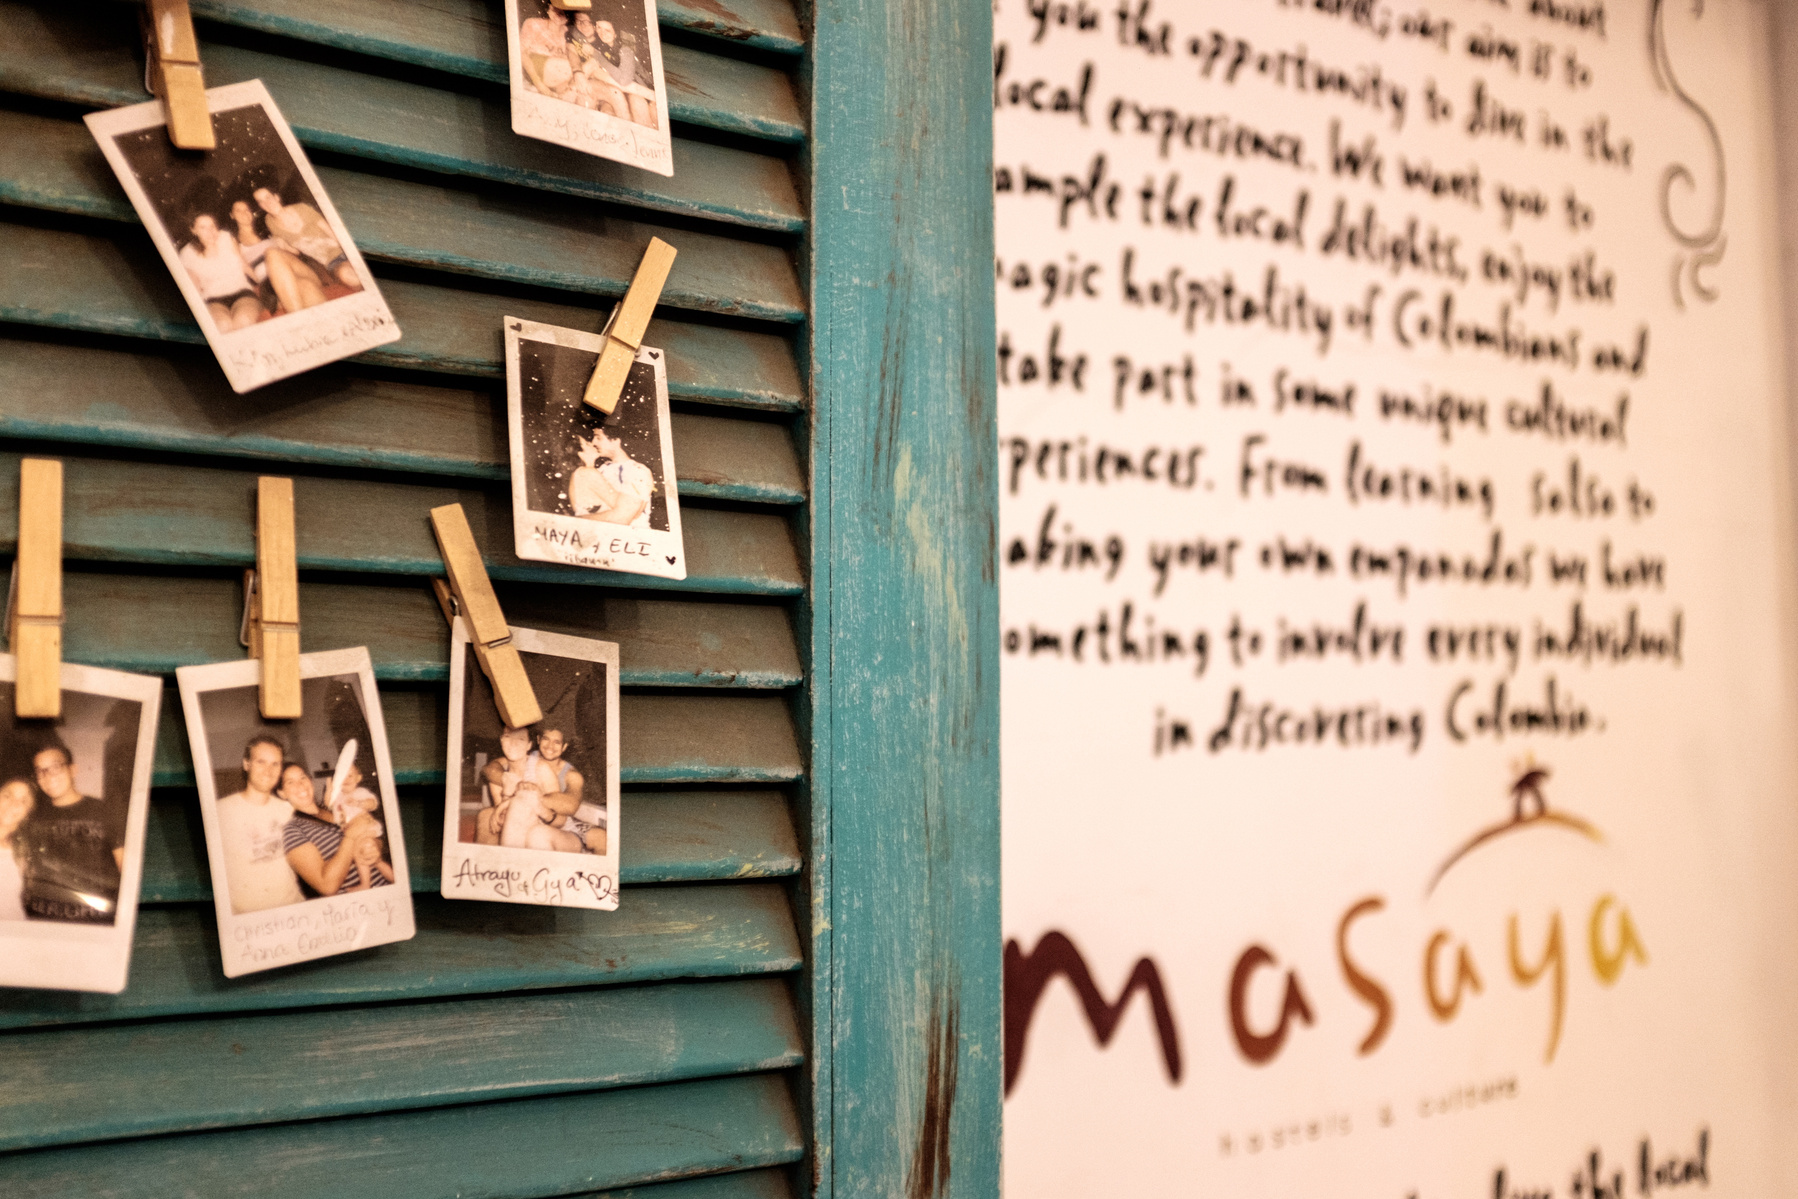 MAYA y ELI
Atrayu & Gya
Christian, María y
Anna
about
travel; our aim is to
you the opportunity to dive in the
local experience. We want you to
ample the local delights, enjoy the
agic hospitality of Colombians and
take part in some unique cultural
periences. From learning salsa to
aking your own empanadas we have
omething to involve every individual
in discovering Colombia.
masaya
hostels & culture
the local